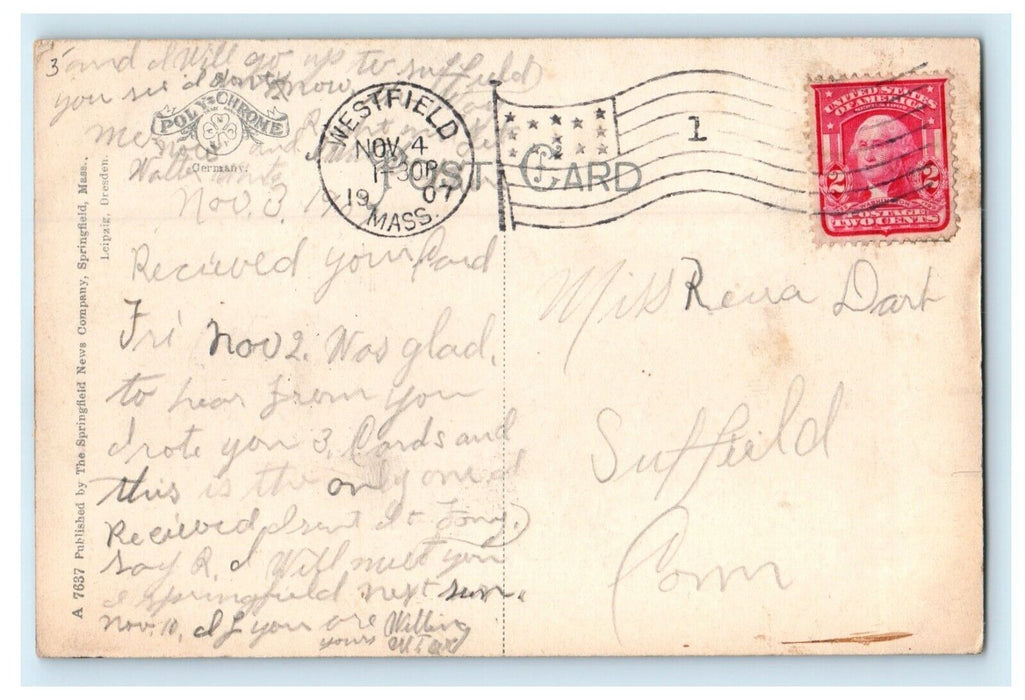 3 and I Will go up to Suffield
you see I now
POLY-CHROME
Germany.
WESTFIELD
NOV 4
1-30P
19 07
MASS.
1
POST CARD
UNITED STATES
OF AMERICA
2 2
POSTAGE
TWO CENTS
Nov. 3,
A 7637 Published by The Springfield News Company, Springfield, Mass.,
Leipzig, Dresden.
Recieved your Card
Fri Nov 2. Was glad,
to hear From you
I rote you 3, Cards and
this is the only one I
Recieved I sent it to
say R. I Will meet you
I springfield next sun.
Nov. 10, If you are Willing
yours
Miss Rena Dart
Suffield
Conn